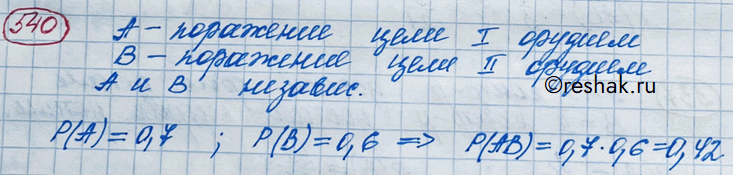 540
А – поражение цели I орудием
В – поражение цели II орудием
А и В независ.
©reshak.ru
P(A) = 0,7 ; P(B) = 0,6 => P(AB) = 0,7 · 0,6 = 0,42